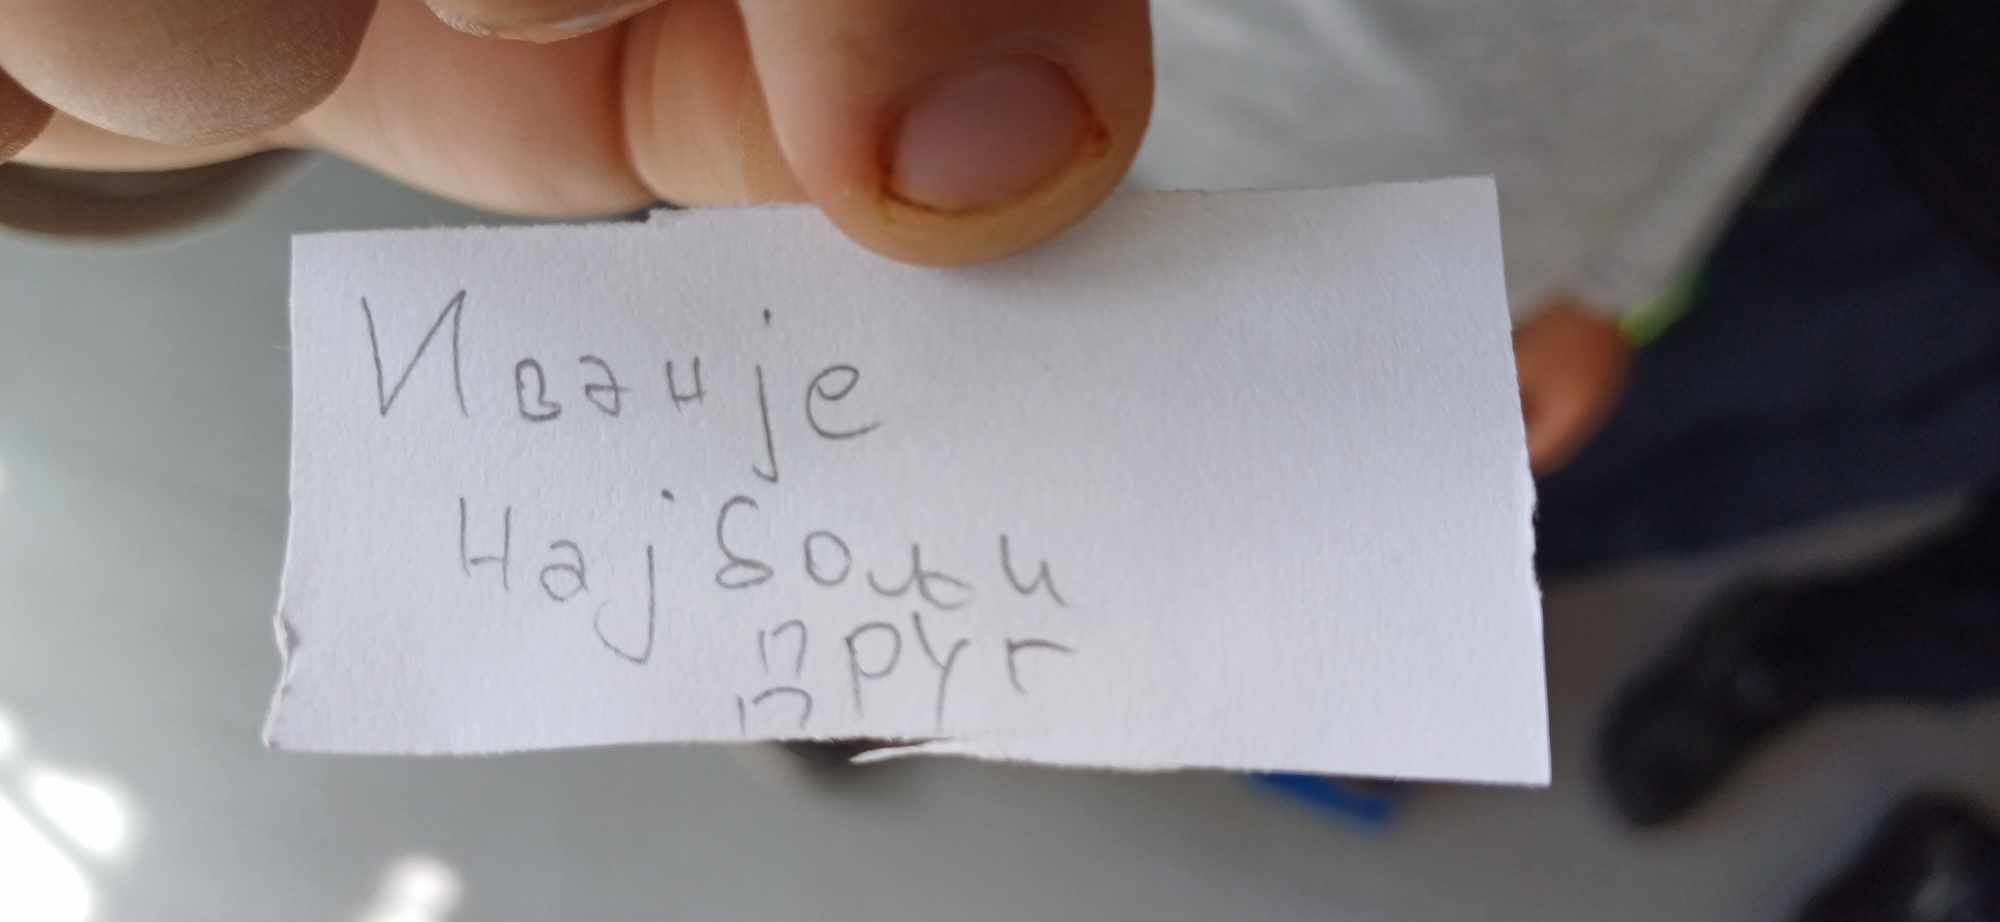 Иван је
најбољи
пруг
п